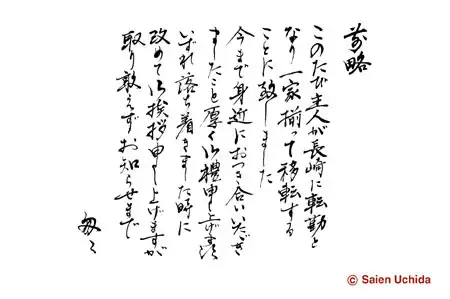 前略
このたび主人が長崎に転勤と
なり一家揃って移転する
ことに致しました
今まで身近におつき合いいただき
ましたこと厚く御禮申し上げます
いずれ落ち着きました時に
改めて御挨拶申し上げますが
取り敢えずお知らせまで
匆々
© Saien Uchida